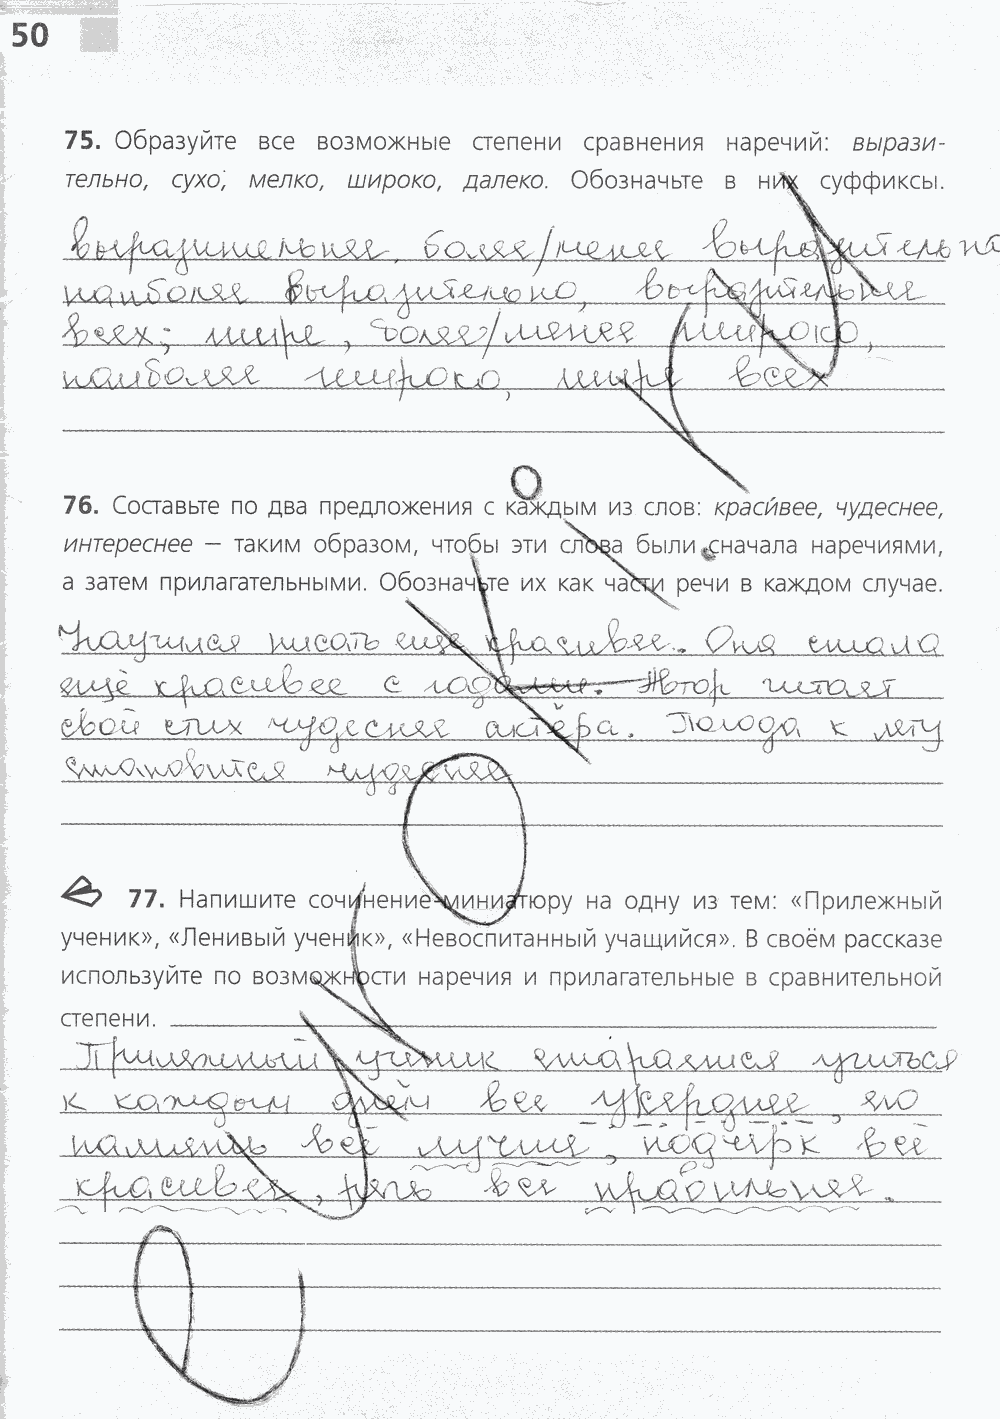 50
75. Образуйте все возможные степени сравнения наречий: вырази-
тельно, сухо, мелко, широко, далеко. Обозначьте в них суффиксы.
выразительнее, более/менее выразительно
наиболее выразительно, выразительнее
всех; шире, более/менее широко,
наиболее широко, шире всех
76. Составьте по два предложения с каждым из слов: краси́вее, чудеснее,
интереснее — таким образом, чтобы эти слова были сначала наречиями,
а затем прилагательными. Обозначьте их как части речи в каждом случае.
Научился писать еще красивее. Она стала
ещё красивее с годами. Автор читает
свой стих чудеснее актёра. Погода к лету
становится чудеснее
77. Напишите сочинение-миниатюру на одну из тем: «Прилежный
ученик», «Ленивый ученик», «Невоспитанный учащийся». В своём рассказе
используйте по возможности наречия и прилагательные в сравнительной
степени.
Прилежный ученик старается учиться
с каждым днём все усерднее, его
память всё лучше, подчерк всё
красивее, речь все правильнее.
eуроки.ru